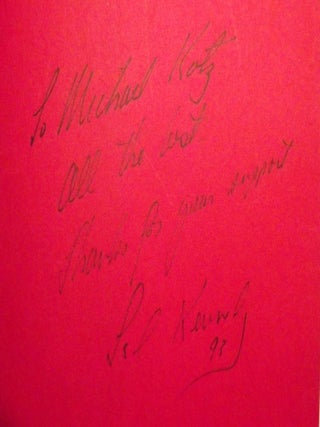 To Michael Katz
All the best
Thanks for your support
93